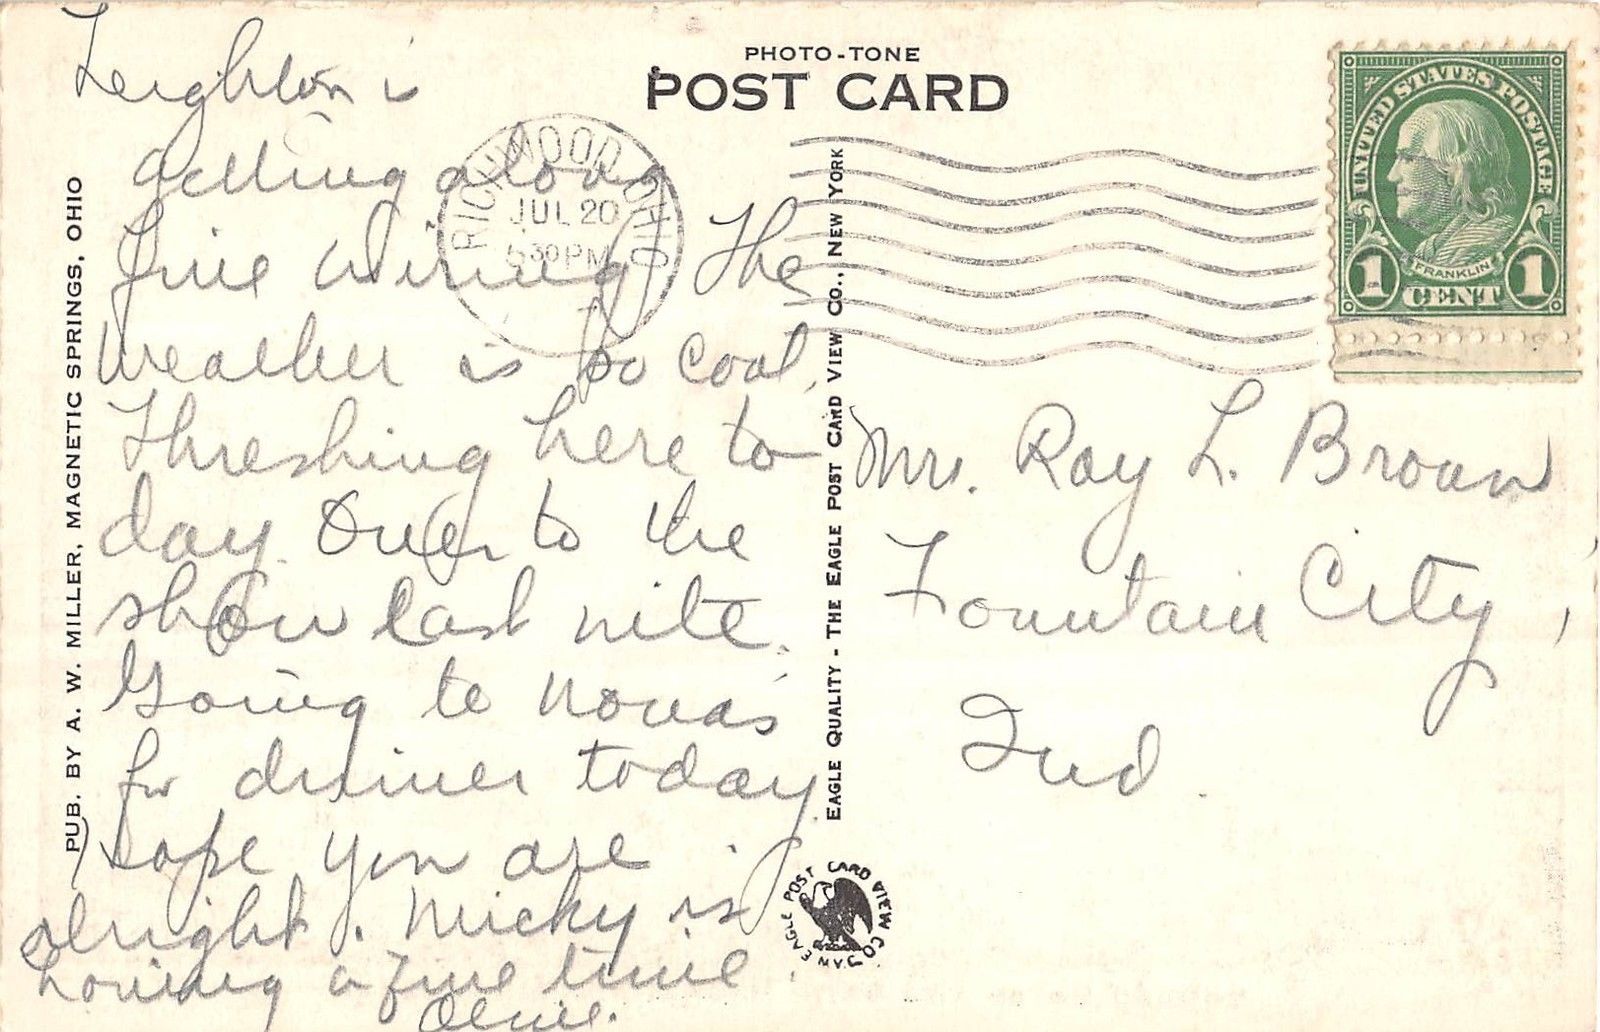 PHOTO-TONE
POST CARD
RICHWOOD OHIO
JUL 20
5 30 PM
UNITED STATES POSTAGE
FRANKLIN
1 CENT 1
Leighton is
getting along
fine The
weather is so cool.
Threshing here to
day. Over to the
show last nite.
Going to Nova's
for dinner today.
hope you are
alright. Micky is
having a fine time
Mrs. Ray L. Brown
Fountain City,
Ind.
PUB. BY A. W. MILLER, MAGNETIC SPRINGS, OHIO
EAGLE QUALITY - THE EAGLE POST CARD VIEW CO., NEW YORK
AN EAGLE POST CARD VIEW CO.